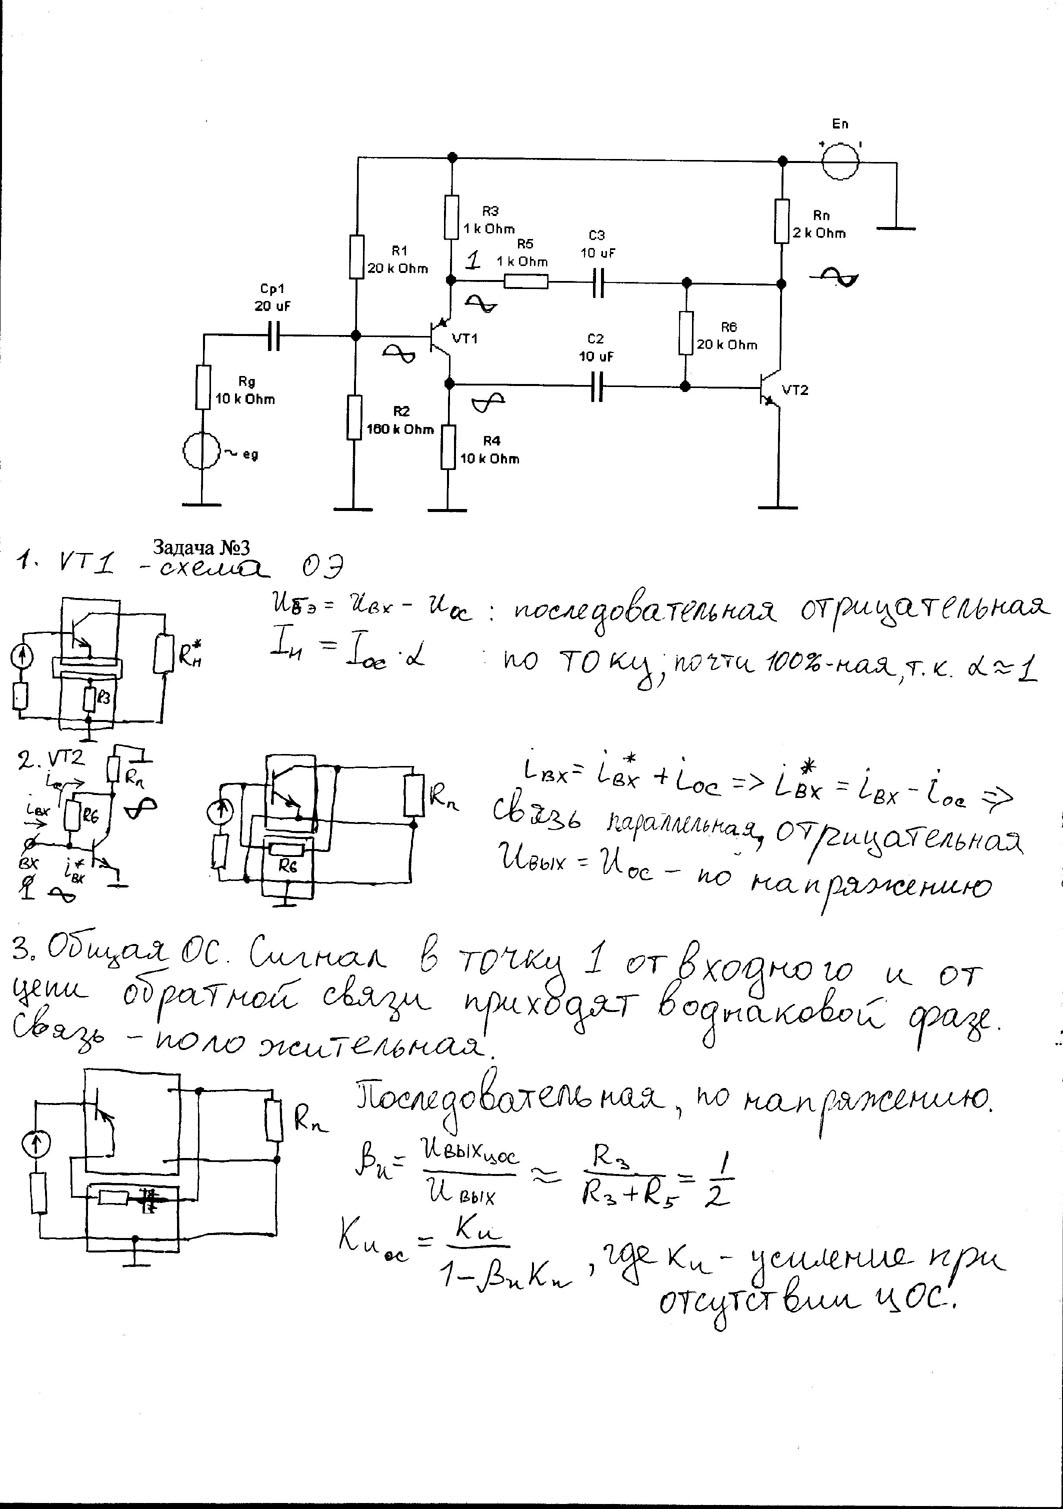 En
R3
1 k Ohm
Rn
2 k Ohm
R1
20 k Ohm
1
R5
1 k Ohm
C3
10 uF
Cp1
20 uF
VT1
R6
20 k Ohm
C2
10 uF
Rg
10 k Ohm
R2
160 k Ohm
VT2
~ eg
R4
10 k Ohm
Задача №3
1. VT1 - схема ОЭ
Uбэ = Uвх - Uос : последовательная отрицательная
Iн = Iос · α : по току, почти 100%-ная, т.к. α ≈ 1
Rн*
R3
2. VT2
Rп
iос
R6
iвх
вх
i*вх
1
Rп
R6
iвх = i*вх + iос => i*вх = iвх - iос =>
связь параллельная, отрицательная
Uвых = Uос - по напряжению
3. Общая ОС. Сигнал в точку 1 от входного и от
цепи обратной связи приходят в однаковой фазе.
Связь - положительная.
Rп
Последовательная, по напряжению.
βu = Uвых цос / Uвых ≈ R3 / (R3 + R5) = 1/2
Ku ос = Ku / (1 - βu Ku), где Ku - усиление при
отсутствии цОС.